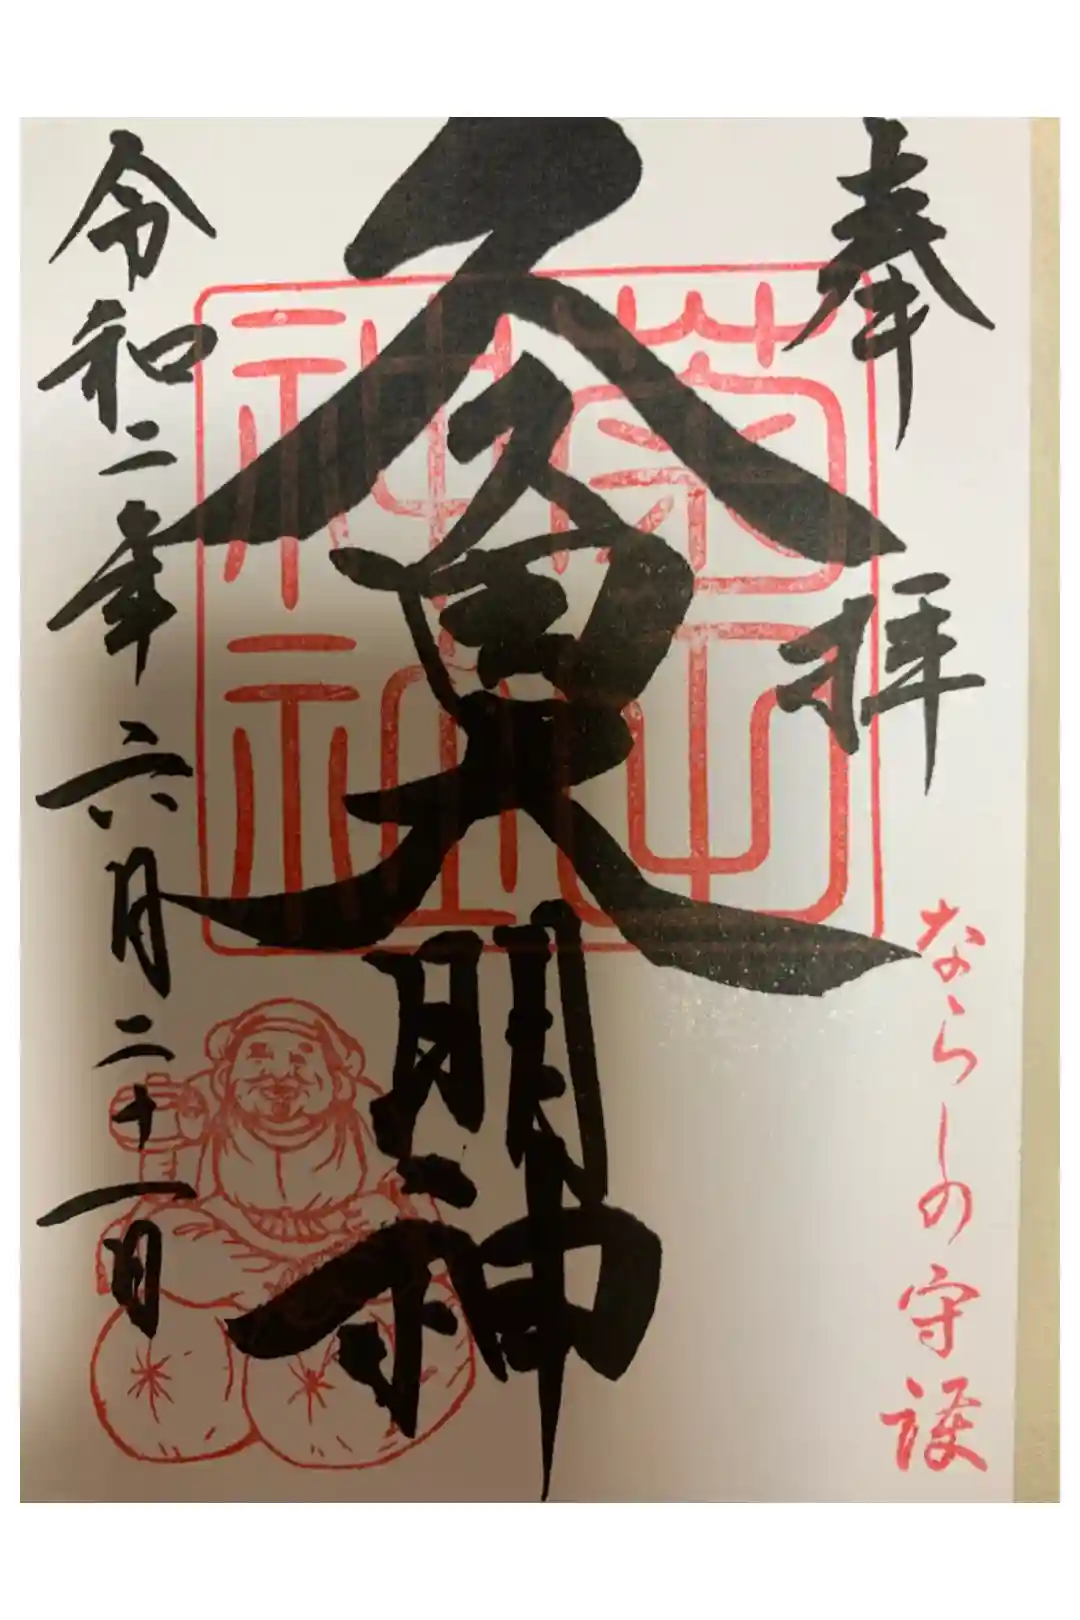 奉拝
ならしの守護
久久田大明神
菊田
神社
令和二年六月二十一日